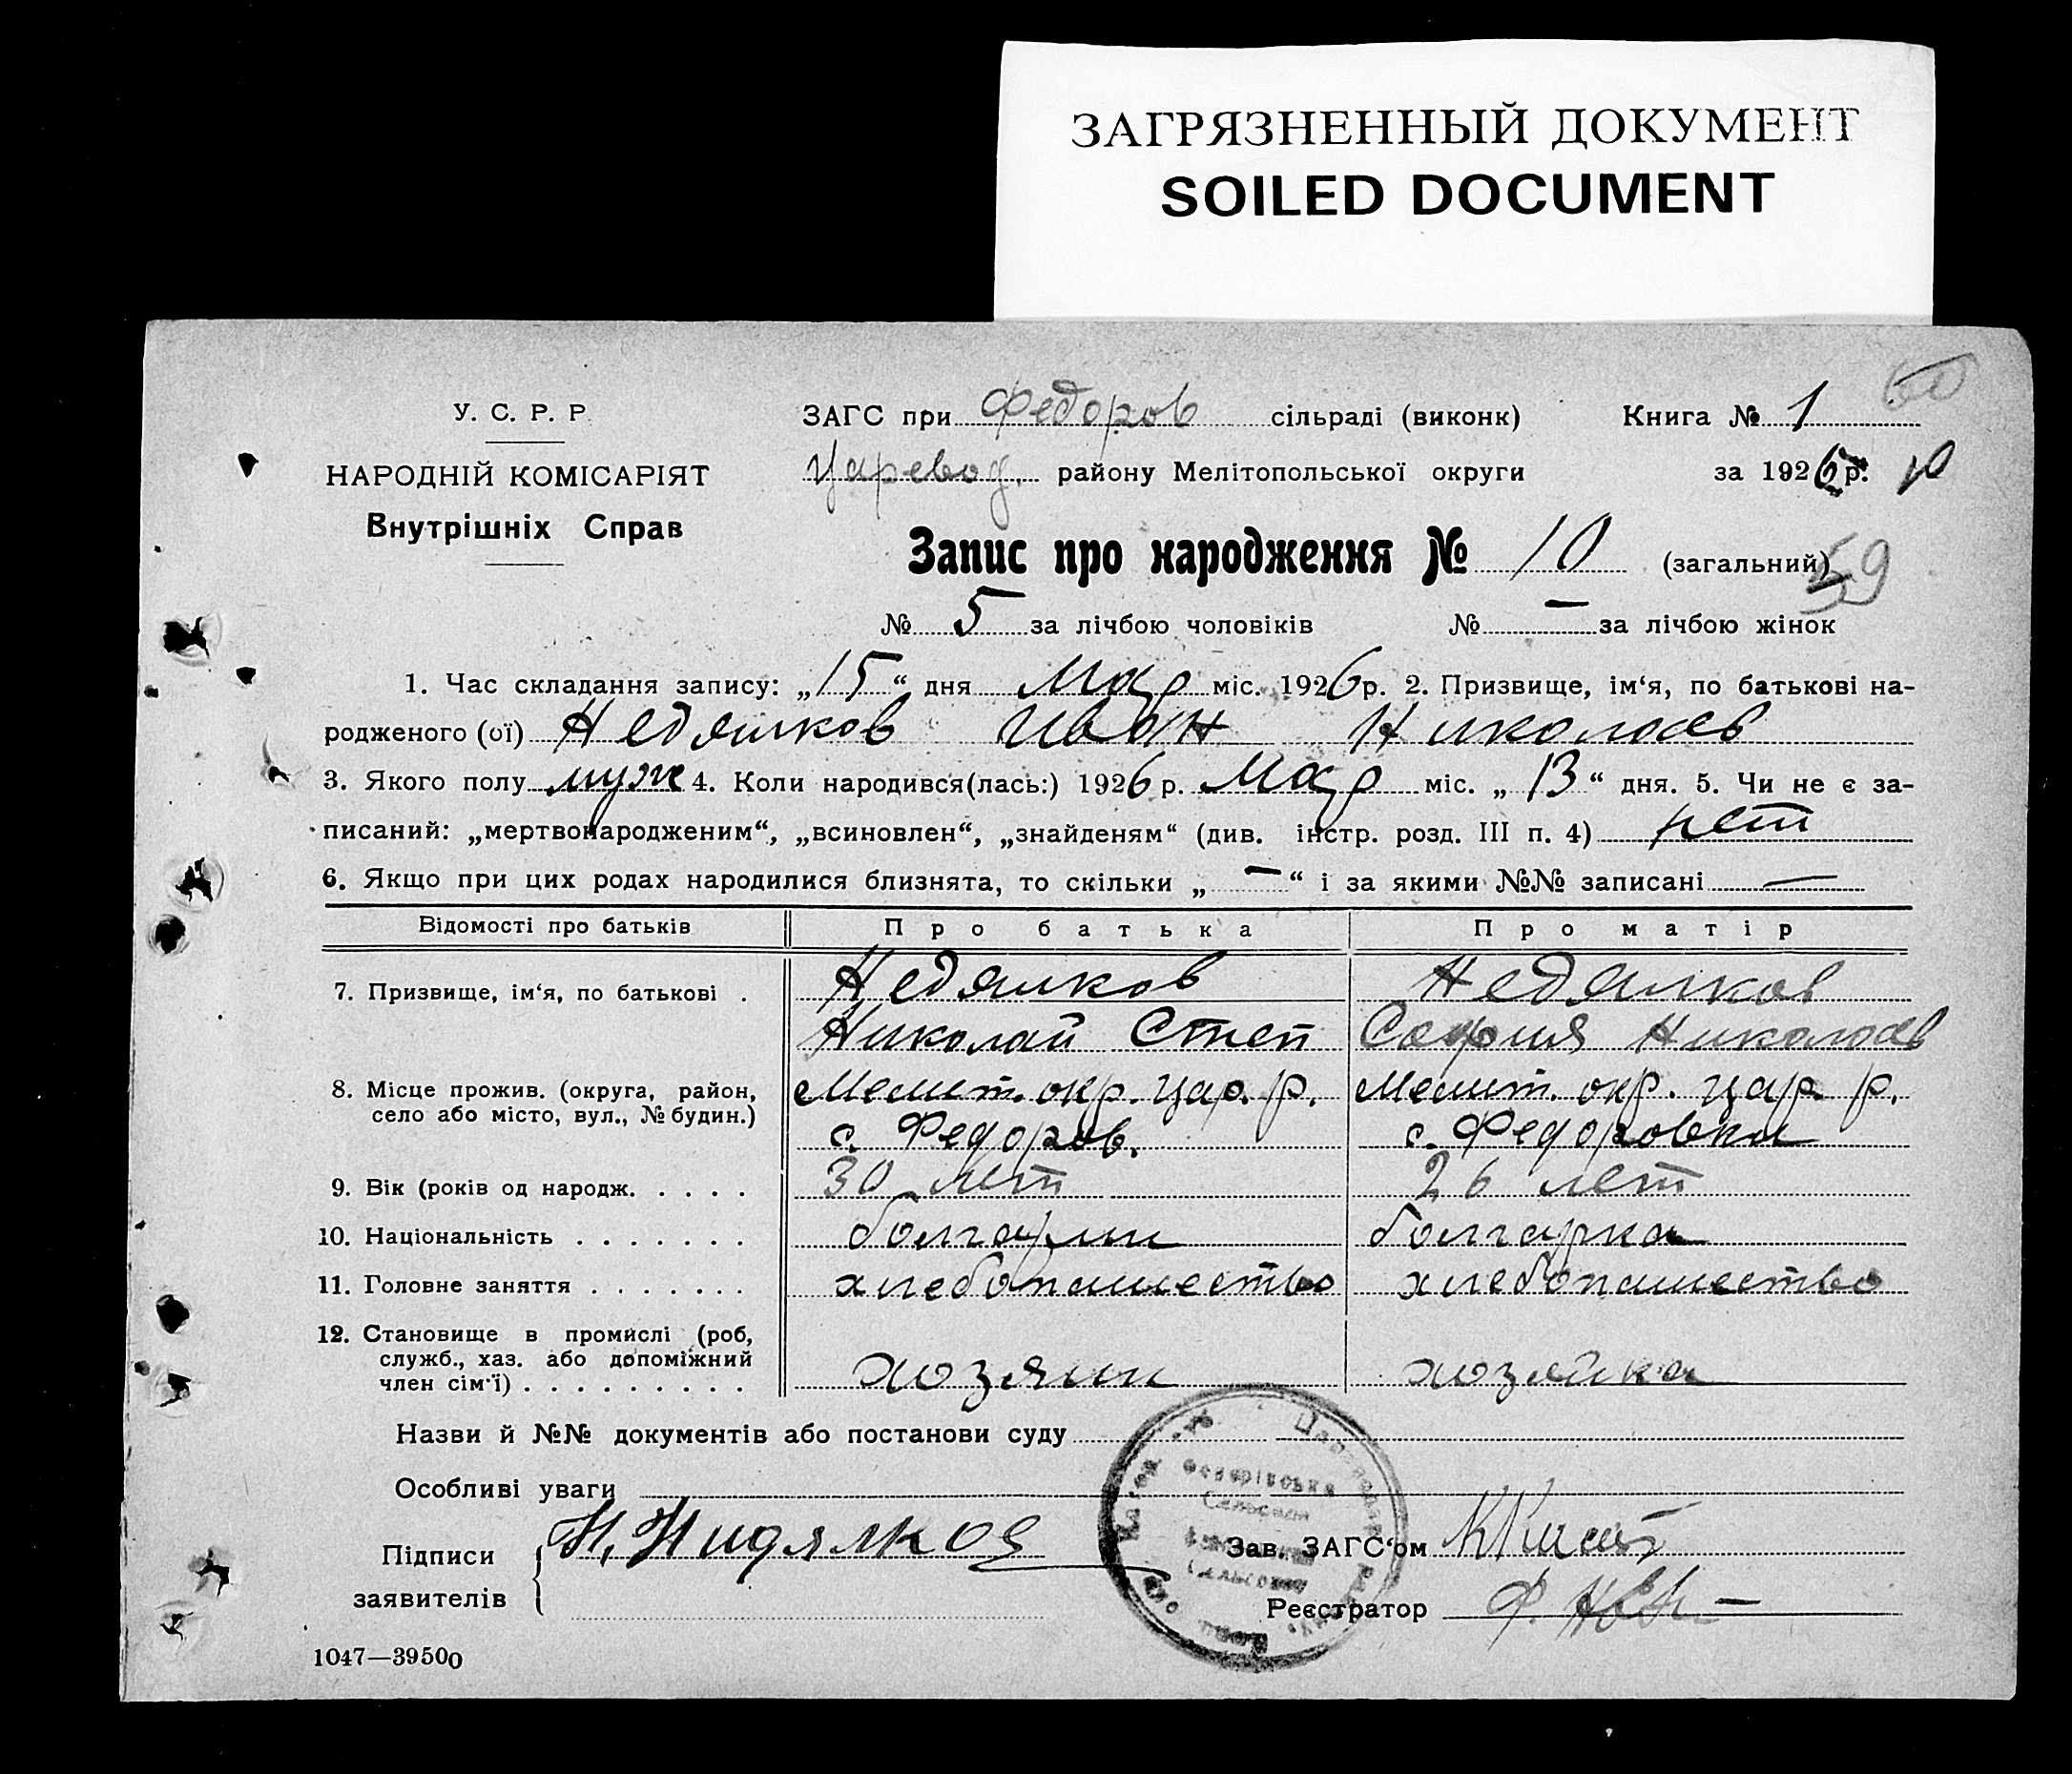 ЗАГРЯЗНЕННЫЙ ДОКУМЕНТ
SOILED DOCUMENT
60
У. С. Р. Р.
НАРОДНІЙ КОМІСАРІЯТ
Внутрішніх Справ
ЗАГС при Федоров сільраді (виконк) Книга № 1
Царевод. району Мелітопольської округи за 1926 р. 10
Запис про народження № 10 (загальний)
59
№ 5 за лічбою чоловіків № — за лічбою жінок
1. Час складання запису: „15“ дня Мар міс. 1926 р. 2. Призвище, ім‘я, по батькові на-
родженого (ої) Недялков Иван Николаев
3. Якого полу муж 4. Коли народився(лась:) 1926 р. Мар міс. „13“ дня. 5. Чи не є за-
писаний: „мертвонародженим“, „всиновлен“, „знайденям“ (див. інстр. розд. III п. 4) нет
6. Якщо при цих родах народилися близнята, то скільки „—“ і за якими №№ записані —
Відомості про батьків Про батька Про матір
7. Призвище, ім‘я, по батькові . Недялков Недялков
Николай Степ София Николаев
8. Місце прожив. (округа, район, Мелит. окр. Цар. р. Мелит. окр. Цар. р.
село або місто, вул., № будин.) с. Федоров. с. Федоровка
9. Вік (років од народж. . . . . 30 лет 26 лет
10. Національність . . . . . . . болгарин болгарка
11. Головне заняття . . . . . . . хлебопашество хлебопашество
12. Становище в промислі (роб,
служб., хаз. або допоміжний
член сім‘ї) . . . . . . . . . хозяин хозяйка
Назви й №№ документів або постанови суду
Особливі уваги
Підписи заявителів Н. Нидялков
Зав. ЗАГС‘ом
Реєстратор
1047—39500